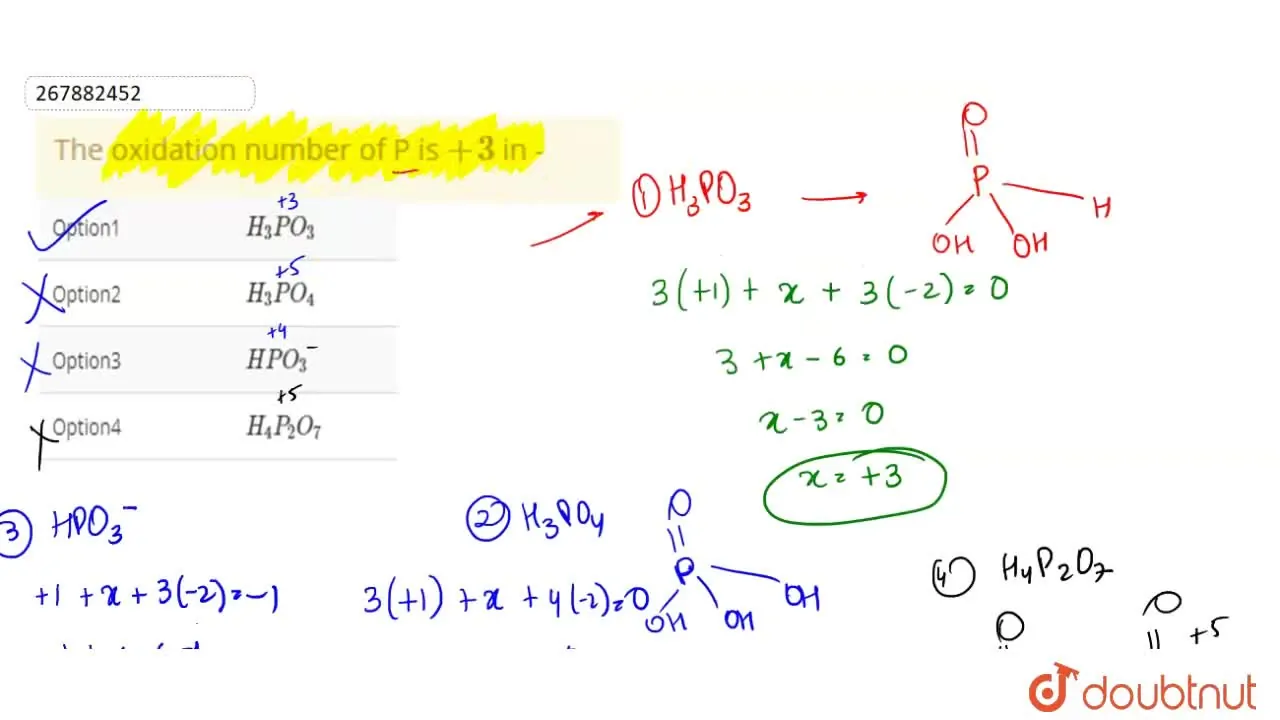 267882452
The oxidation number of P is +3 in -
+3
Option1 H₃PO₃
+5
Option2 H₃PO₄
+4
Option3 HPO₃⁻
+5
Option4 H₄P₂O₇
① H₃PO₃ →
O
P
H
OH OH
3(+1) + x + 3(-2) = 0
3 + x - 6 = 0
x - 3 = 0
x = +3
③ HPO₃⁻
+1 + x + 3(-2) = -1
② H₃PO₄
3(+1) + x + 4(-2) = 0
O
P
OH OH OH
④ H₄P₂O₇
O O
+5
doubtnut